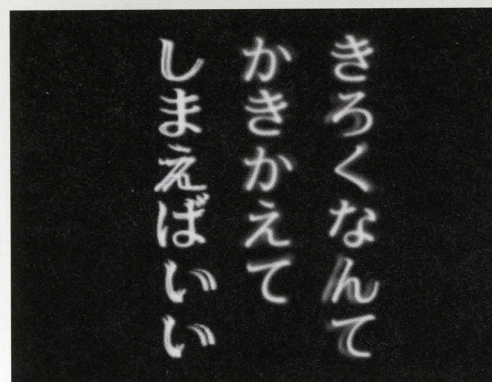 きろくなんて
かきかえて
しまえばいい